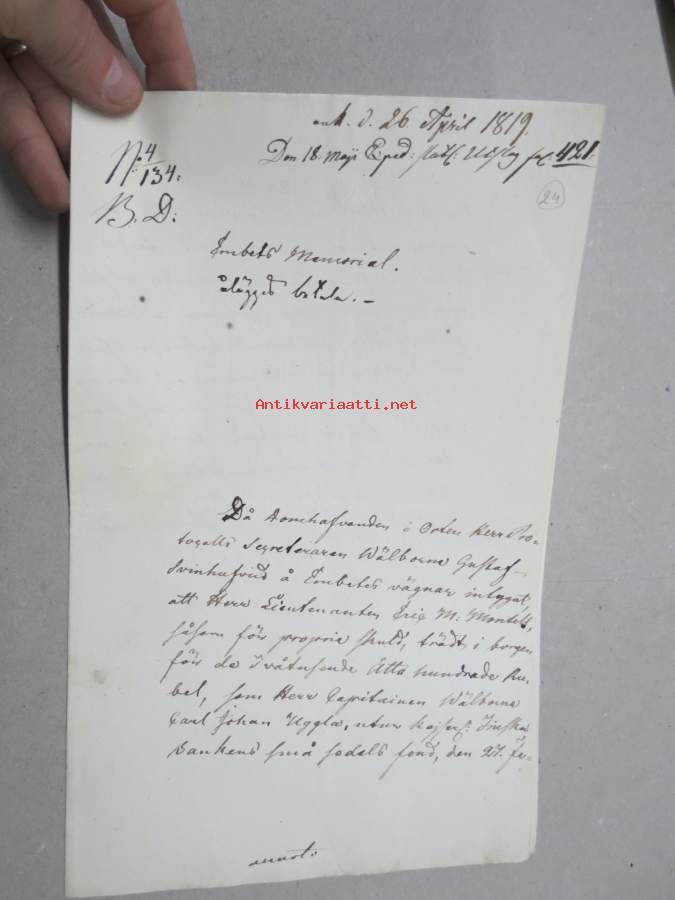 ank. d. 26 April 1819.
Den 18 Maji Exped: Utslag fol. 421.
No 4/134:
B. D:
24
Embets Memorial.
ålägges betala. –
Antikvariaatti.net
Då Domhafvanden i Orten Herr Pro-
tocolls Secreteraren Wälborne Gustaf
Svinhufvud å Embetets vägnar intygat,
att Herr Lieutenanten Eric M. Montell,
såsom för proprie skuld, trädt i borgen
för de Tvåtusende Åtta hundrade Ru-
bel, som Herr Capitainen Wälborne
Carl Johan Uggla, utur Kejserl: Finska
Bankens små sedels fond, den 27. Fe-